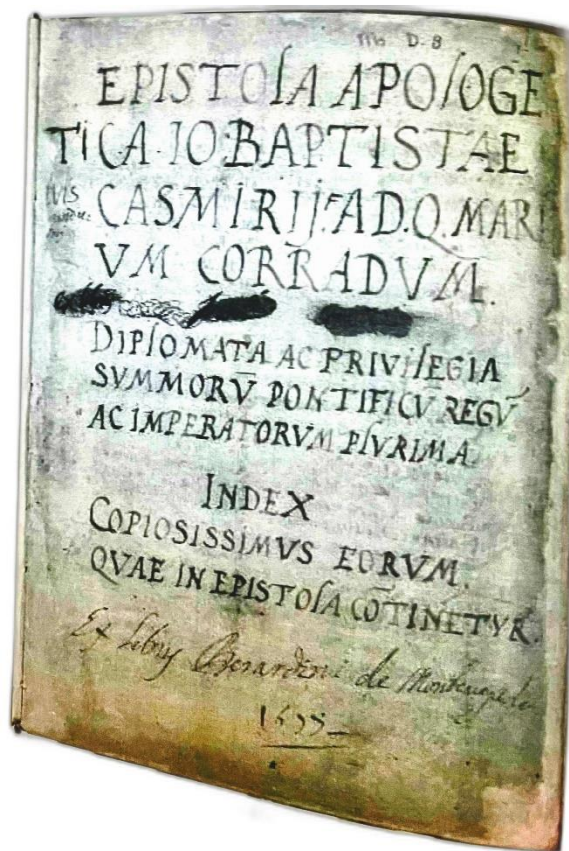 D. 8
EPISTOLA APOLOGE
TICA IO BAPTISTAE
CASMIRIJ. AD. Q. MARI
VM CORRADVM.
DIPLOMATA AC PRIVILEGIA
SVMMORV̄ PONTIFICV̄ REGV̄
AC IMPERATORVM PLVRIMA
INDEX
COPIOSISSIMVS EORVM.
QVAE IN EPISTOLA CŌTINETVR.
Ex libris Berardini de